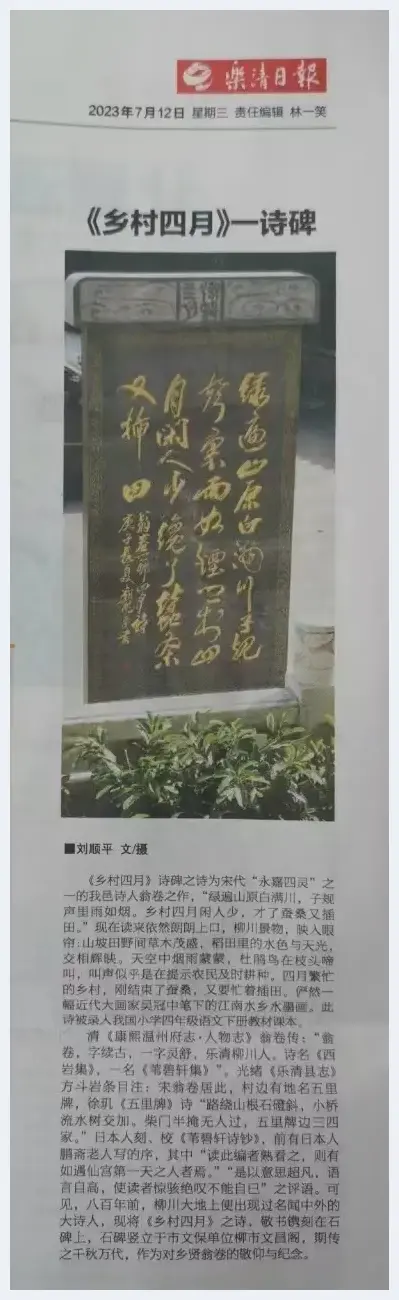 樂清日報
2023年7月12日 星期三 责任编辑 林一笑
《乡村四月》一诗碑
绿遍山原白满川子规
声里雨如烟乡村四
月闲人少才了蚕桑
又插田
翁卷
■刘顺平 文/摄
《乡村四月》诗碑之诗为宋代“永嘉四灵”之
一的我邑诗人翁卷之作，“绿遍山原白满川，子规
声里雨如烟。乡村四月闲人少，才了蚕桑又插
田。”现在读来依然朗朗上口，柳川景物，映入眼
帘：山坡田野间草木茂盛，稻田里的水色与天光，
交相辉映。天空中烟雨蒙蒙，杜鹃鸟在枝头啼
叫，叫声似乎是在提示农民及时耕种。四月繁忙
的乡村，刚结束了蚕桑，又要忙着插田。俨然一
幅近代大画家吴冠中笔下的江南水乡水墨画。此
诗被录入我国小学四年级语文下册教材课本。
清《康熙温州府志·人物志》翁卷传：“翁
卷，字续古，一字灵舒，乐清柳川人。诗名《西
岩集》，一名《苇碧轩集》”。光绪《乐清县志》
方斗岩条目注：宋翁卷居此，村边有地名五里
牌，徐玑《五里牌》诗“路绕山根石磴斜，小桥
流水树交加。柴门半掩无人过，五里牌边三四
家。”日本人刻、校《苇碧轩诗钞》，前有日本人
鹏斋老人写的序，其中“读此编者熟看之，则有
如遇仙宫第一天之人者焉。”“是以意思超凡，语
言自高，使读者惊骇绝叹不能自已”之评语。可
见，八百年前，柳川大地上便出现过名闻中外的
大诗人，现将《乡村四月》之诗，敬书镌刻在石
碑上，石碑竖立于市文保单位柳市文昌阁，期传
之千秋万代，作为对乡贤翁卷的敬仰与纪念。